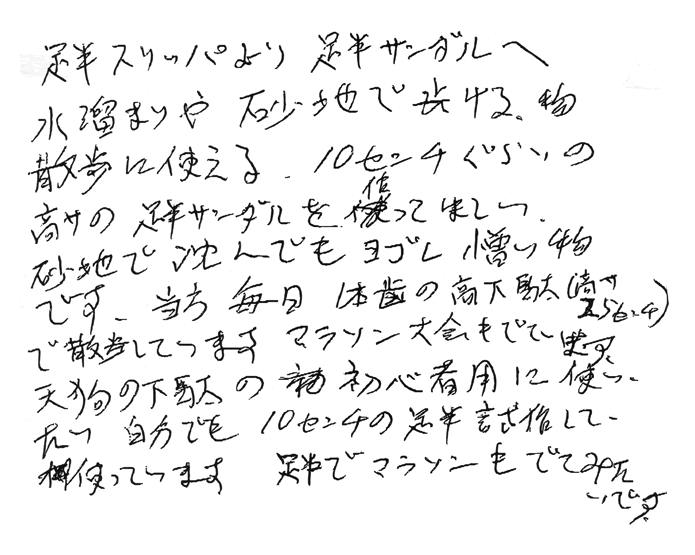 足半スリッパより 足半サンダルへ
水溜まりや 砂地で歩ける、物
散歩に使える、10センチぐらいの
高サの 足半サンダルを作ってほしい、
砂地で沈んでもヨゴレ憎い物
です、当方 毎日 1本歯の高下駄(高サ25センチ)
で散歩しています マラソン大会もでています、
天狗の下駄の 初心者用に使い
たい 自分でも 10センチの足半試作して、
使っています 足半でマラソンもでてみた
いです